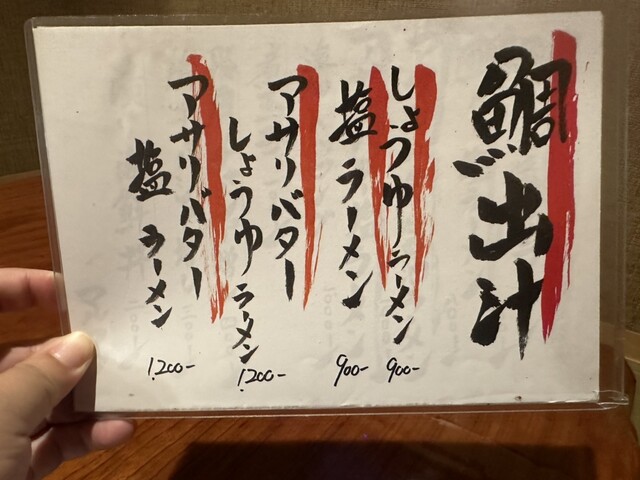 鯛出汁
しょうゆラーメン
900-
塩ラーメン
900-
アサリバター
しょうゆラーメン
1.200-
アサリバター
塩ラーメン
1.200-